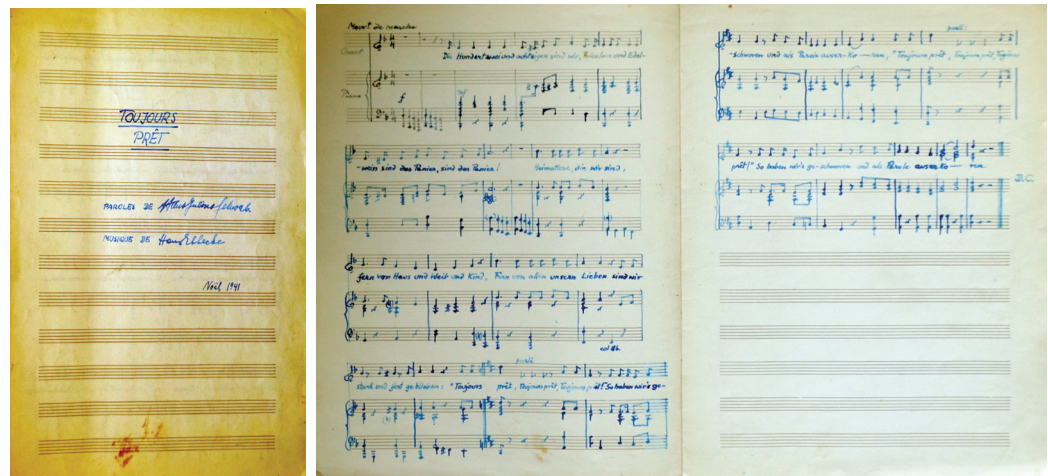 TOUJOURS
PRÊT
PAROLES DE
MUSIQUE DE Hans
Noël 1941
Mouvt de marche
Chant
Die Hundertzweiundachtziger sind wir, und Edel-
Piano
f
-weiss sind das Panier, sind das Panier! Heimatlose, die wir sind,
fern von Haus und Weib und Kind, Fern von allen unsern Lieben sind wir
col 8b.
parlé
stark und fest geblieben: "Toujours prêt, Toujours prêt, Toujours prêt! So haben wir's ge-
parlé
-schworen und als Parole auserko-ren, "Toujours prêt, Toujours prêt, Toujours
prêt!" So haben wir's ge-schworen und als Parole auserko-ren.
D.C.